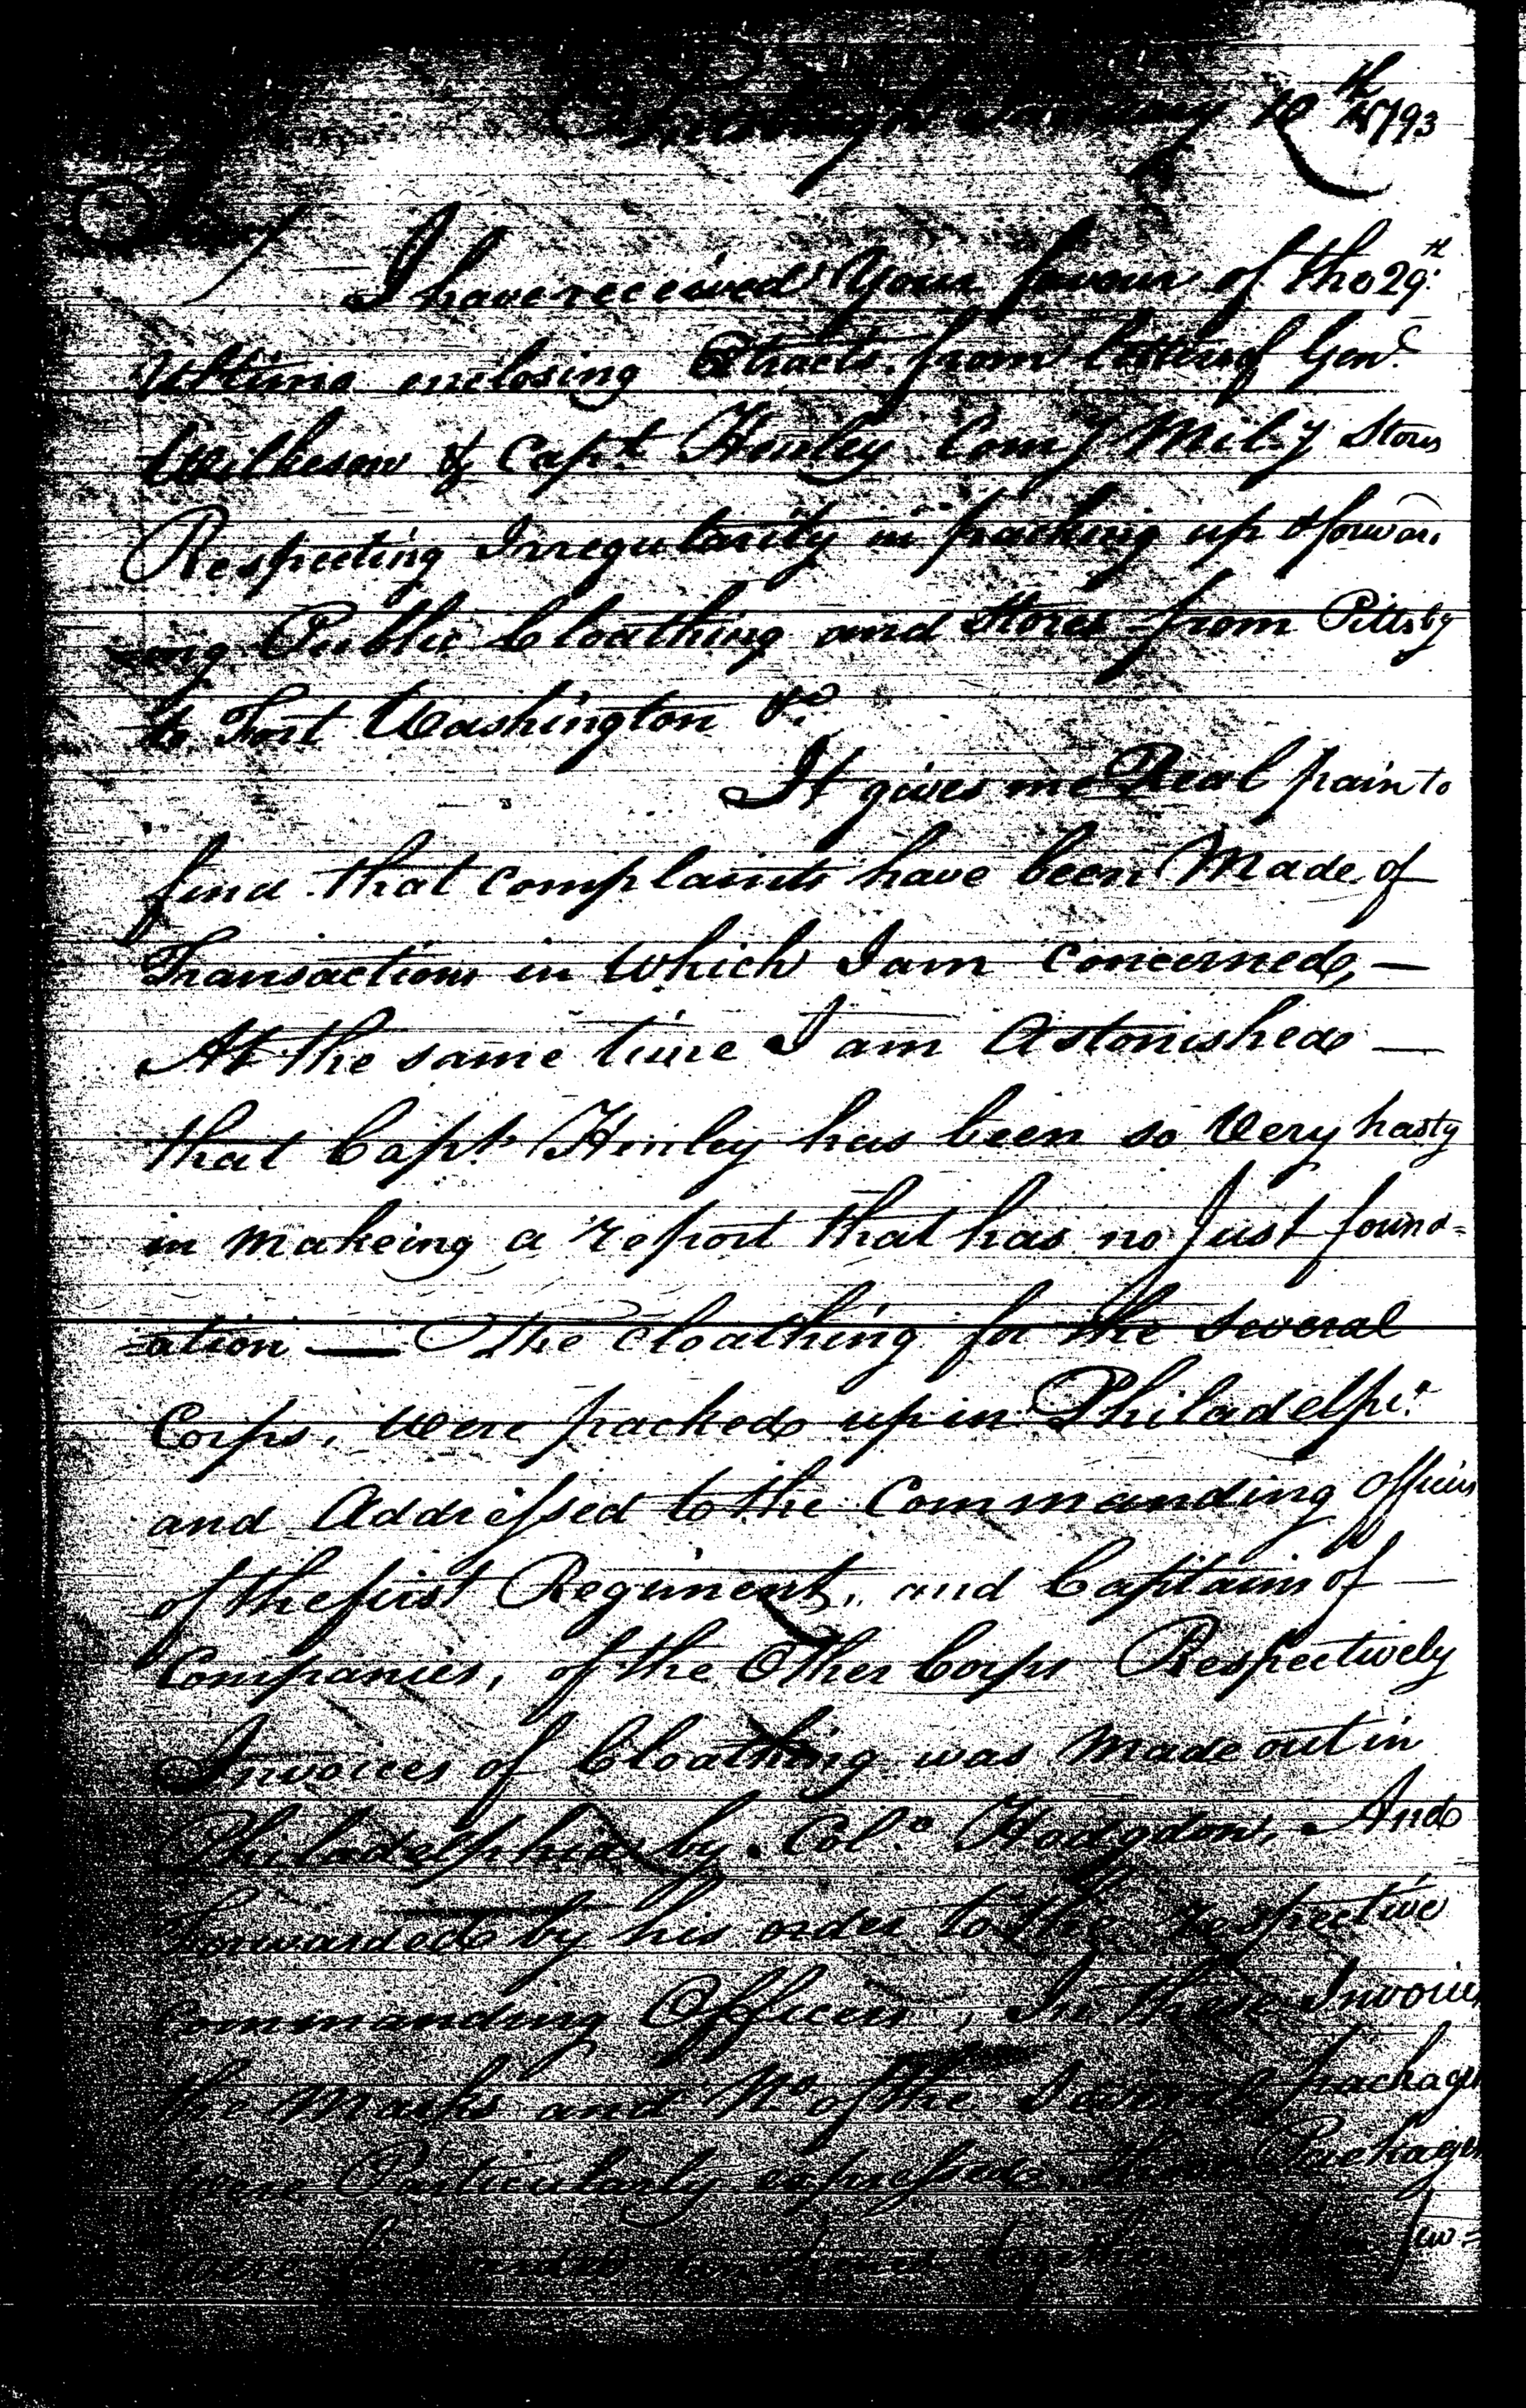 Pittsburgh January 10th 1793
Sir
I have received Your favour of the 29th
Ultimo enclosing Extracts from letters of Genl
Wilkeson & Capt Henley Comy Mily Stores
Respecting Irregularity in packing up & forward
ing Public Cloathing and Stores from Pittsbg
to Fort Washington &c
It gives me Real pain to
find that complaints have been Made of
Transactions in Which I am Concerned, —
At the same time I am Astonished —
that Capt Henley has been so Very hasty
in makeing a report that has no Just found=
=ation — The Cloathing for the several
Corps, Were packed up in Philadelpa
and Addressed to the Commanding Officers
of the first Regiment, and Captains of —
Companies, of the Other Corps Respectively
Invoices of Cloathing was Made out in
Philadelphia by Colo Hodgdon, And
Forwarded by his order to the respective
Commanding Officers, In these Invoices
the Marks and No of the Several packages
Were Particularly expressed, these Packages
were forwarded